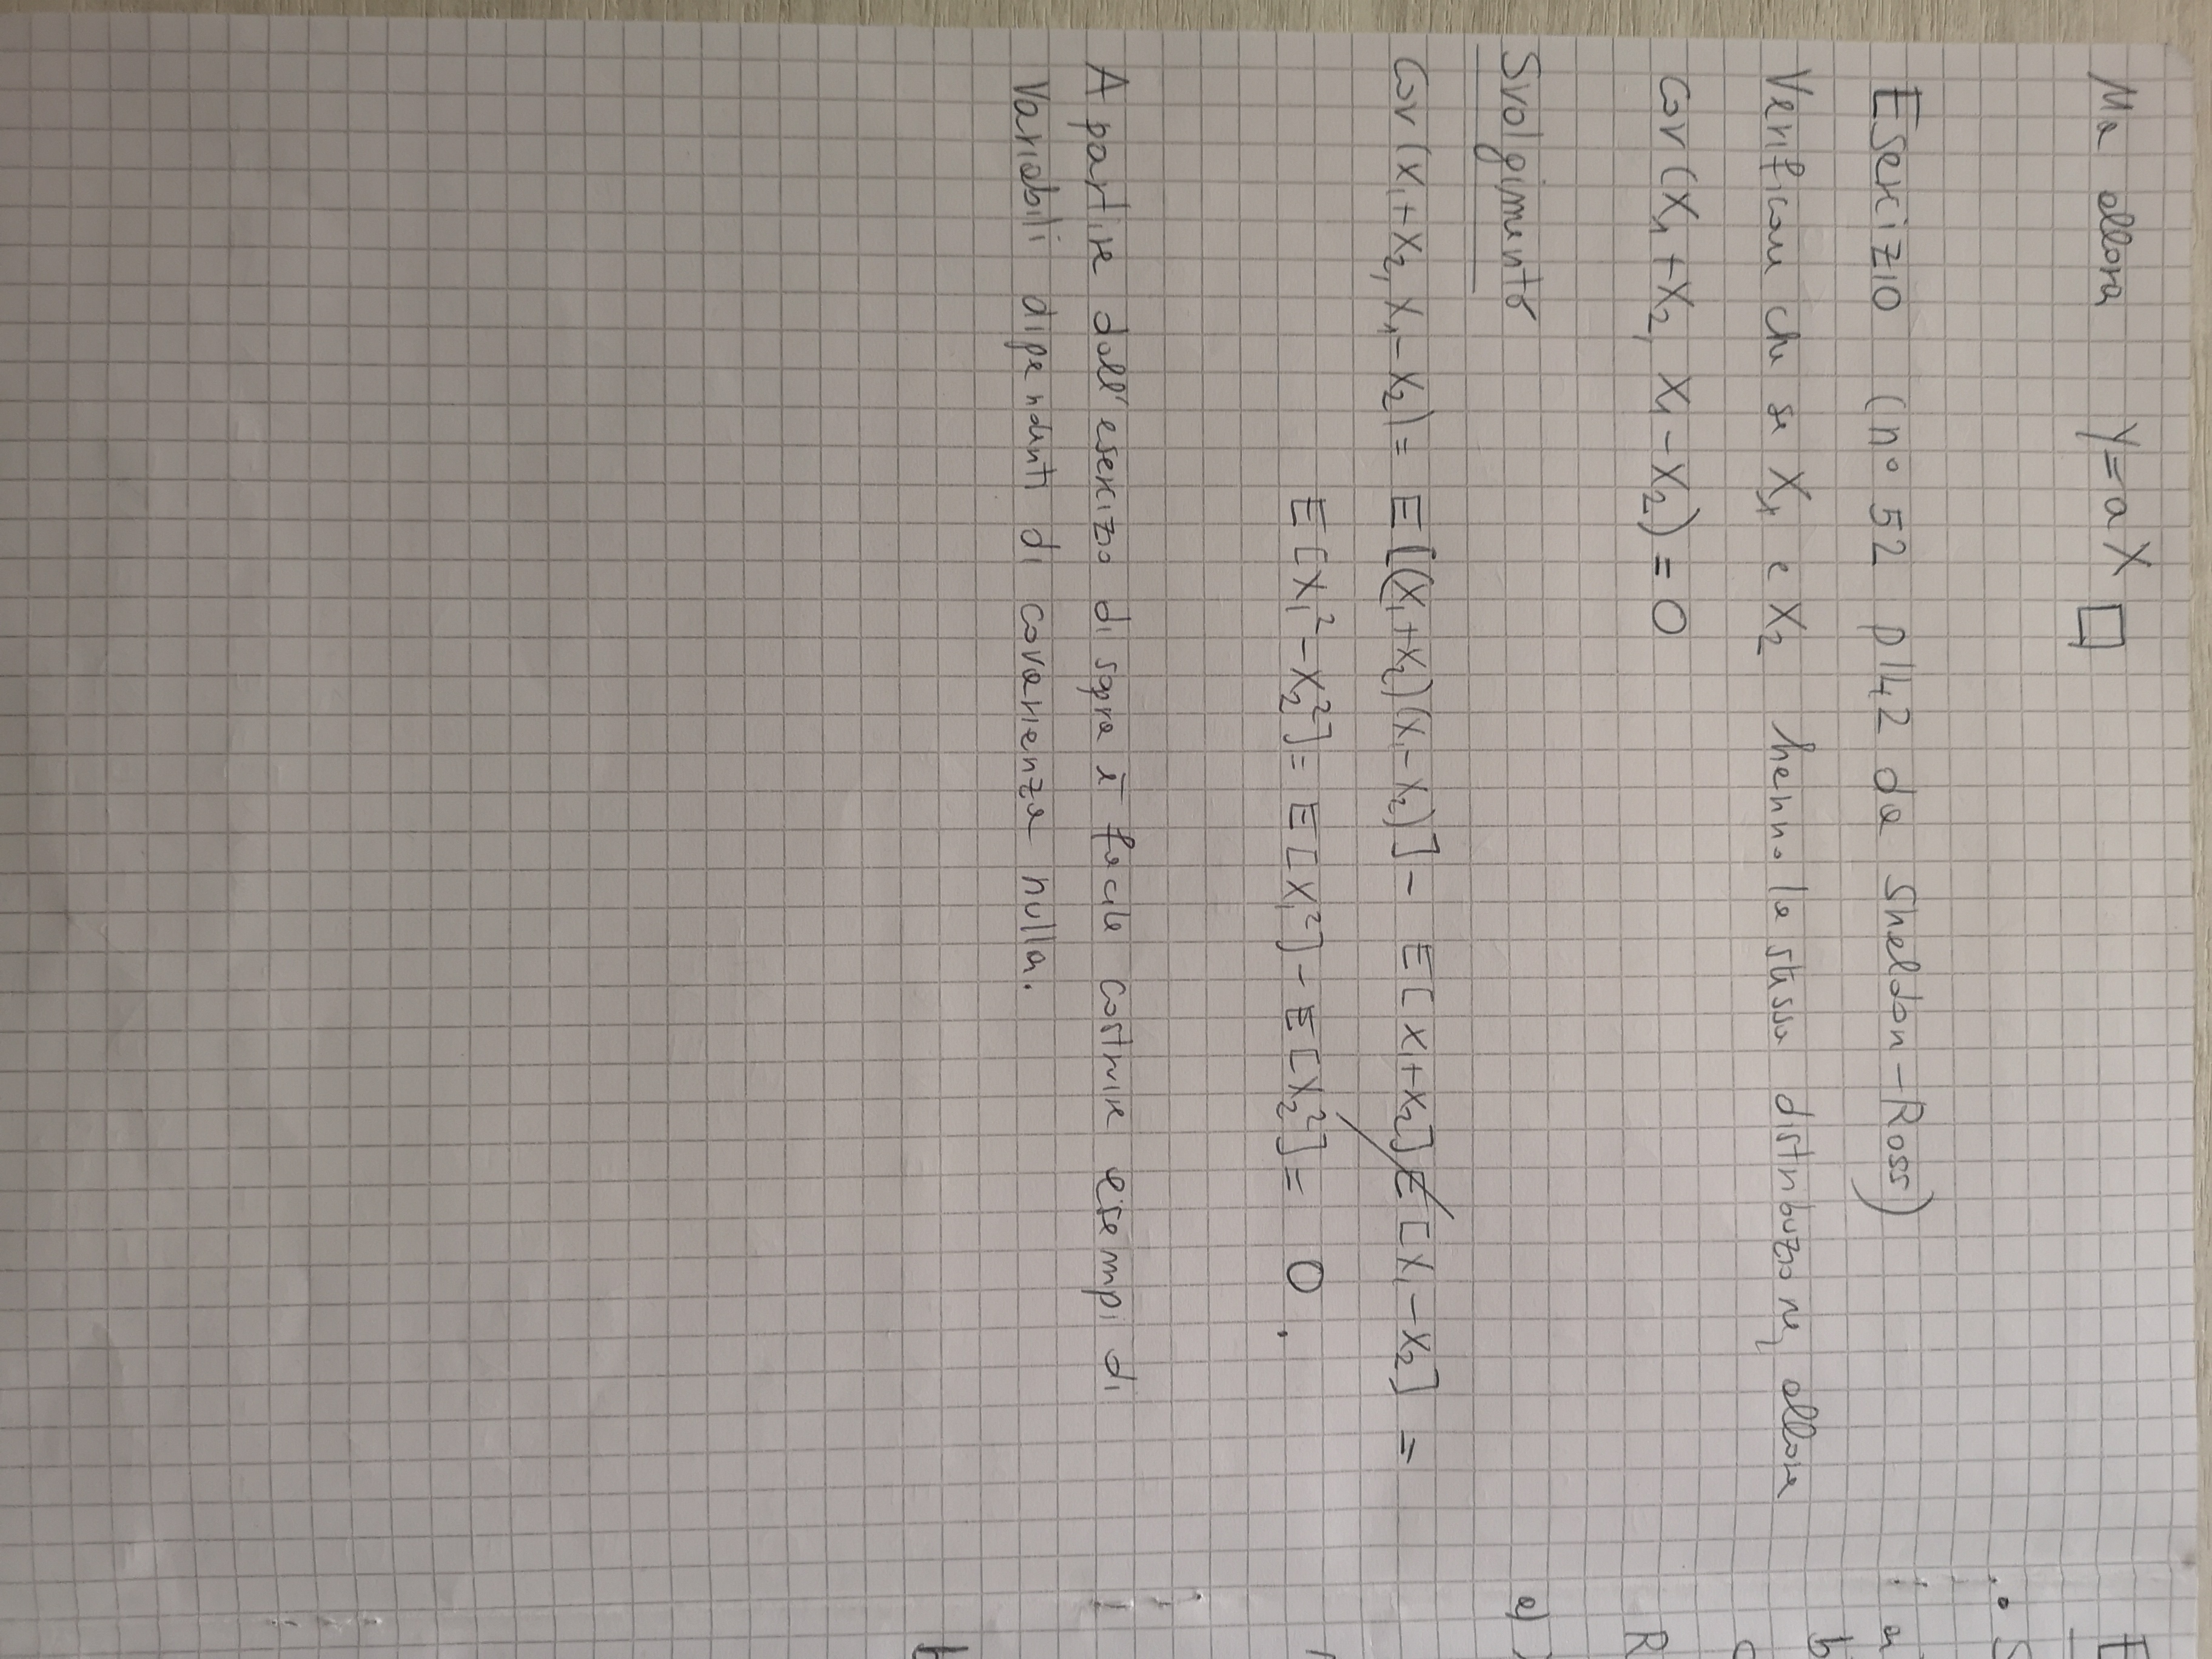 Ma allora Y=aX □
Esercizio (n° 52 p142 da Sheldon-Ross)
Verificare che se X₁ e X₂ hanno la stessa distribuzione, allora
Cov(X₁+X₂, X₁-X₂)=0
Svolgimento
Cov(X₁+X₂, X₁-X₂)= E[(X₁+X₂)(X₁-X₂)]- E[X₁+X₂]E[X₁-X₂] =
E[X₁²-X₂²]= E[X₁²]-E[X₂²]= 0.
A partire dall'esercizio di sopra è facile costruire esempi di
variabili dipendenti di covarianza nulla.